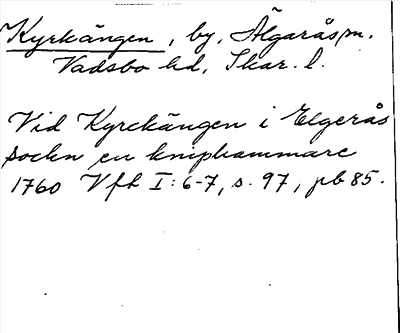 Kyrkängen, by, Älgarås sn.
Vadsbo hd, Skar. l.
Vid Kyrckängen i Elgerås
sockn en kniphammare
1760 Vfh I: 6-7, s. 97, pb 85.